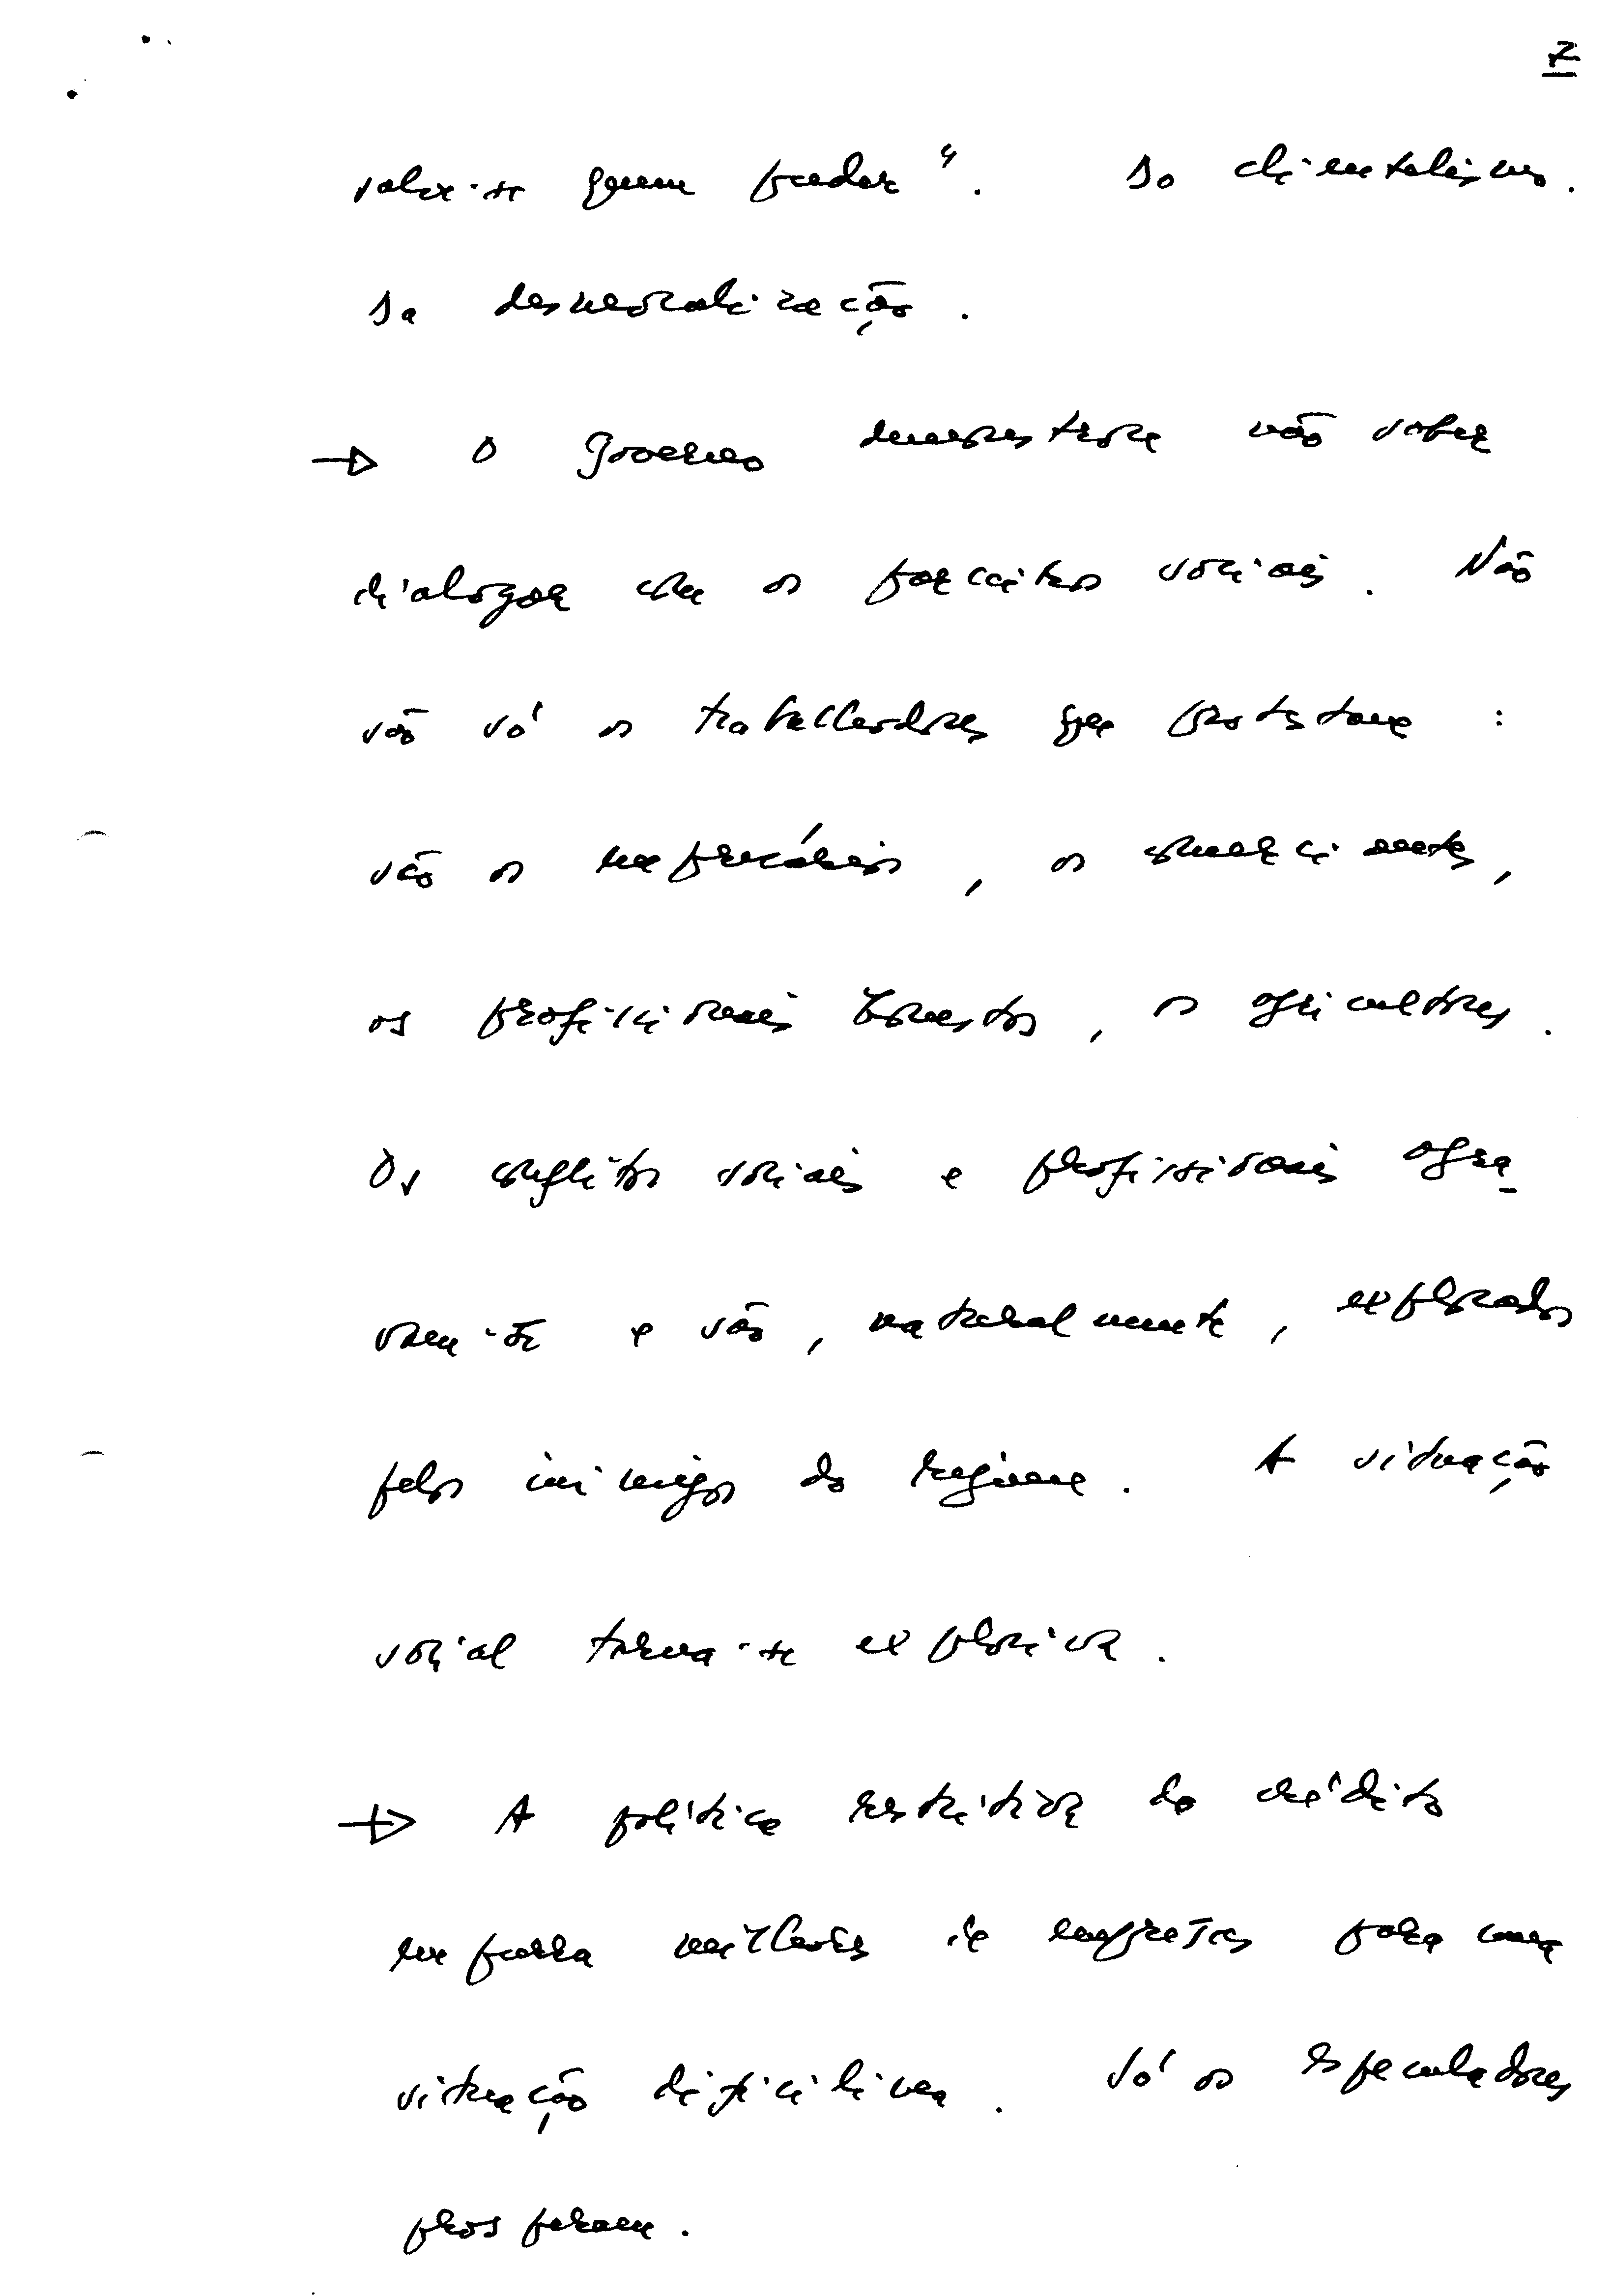 7
salve-se quem puder". Do clientelismo.
Da desmoralização.
→ O Governo demonstra não saber
dialogar com os parceiros sociais. Não
são só os trabalhadores que protestam :
são os empresários, os comerciantes,
os profissionais honestos, os agricultores.
Os conflitos sociais e profissionais agra-
vam-se e são, naturalmente, explorados
pelos inimigos do regime. A situação
social torna-se explosiva.
→ A política restritiva do crédito
empurra milhares de empresas para uma
situação dificílima. Só os especuladores
prosperam.